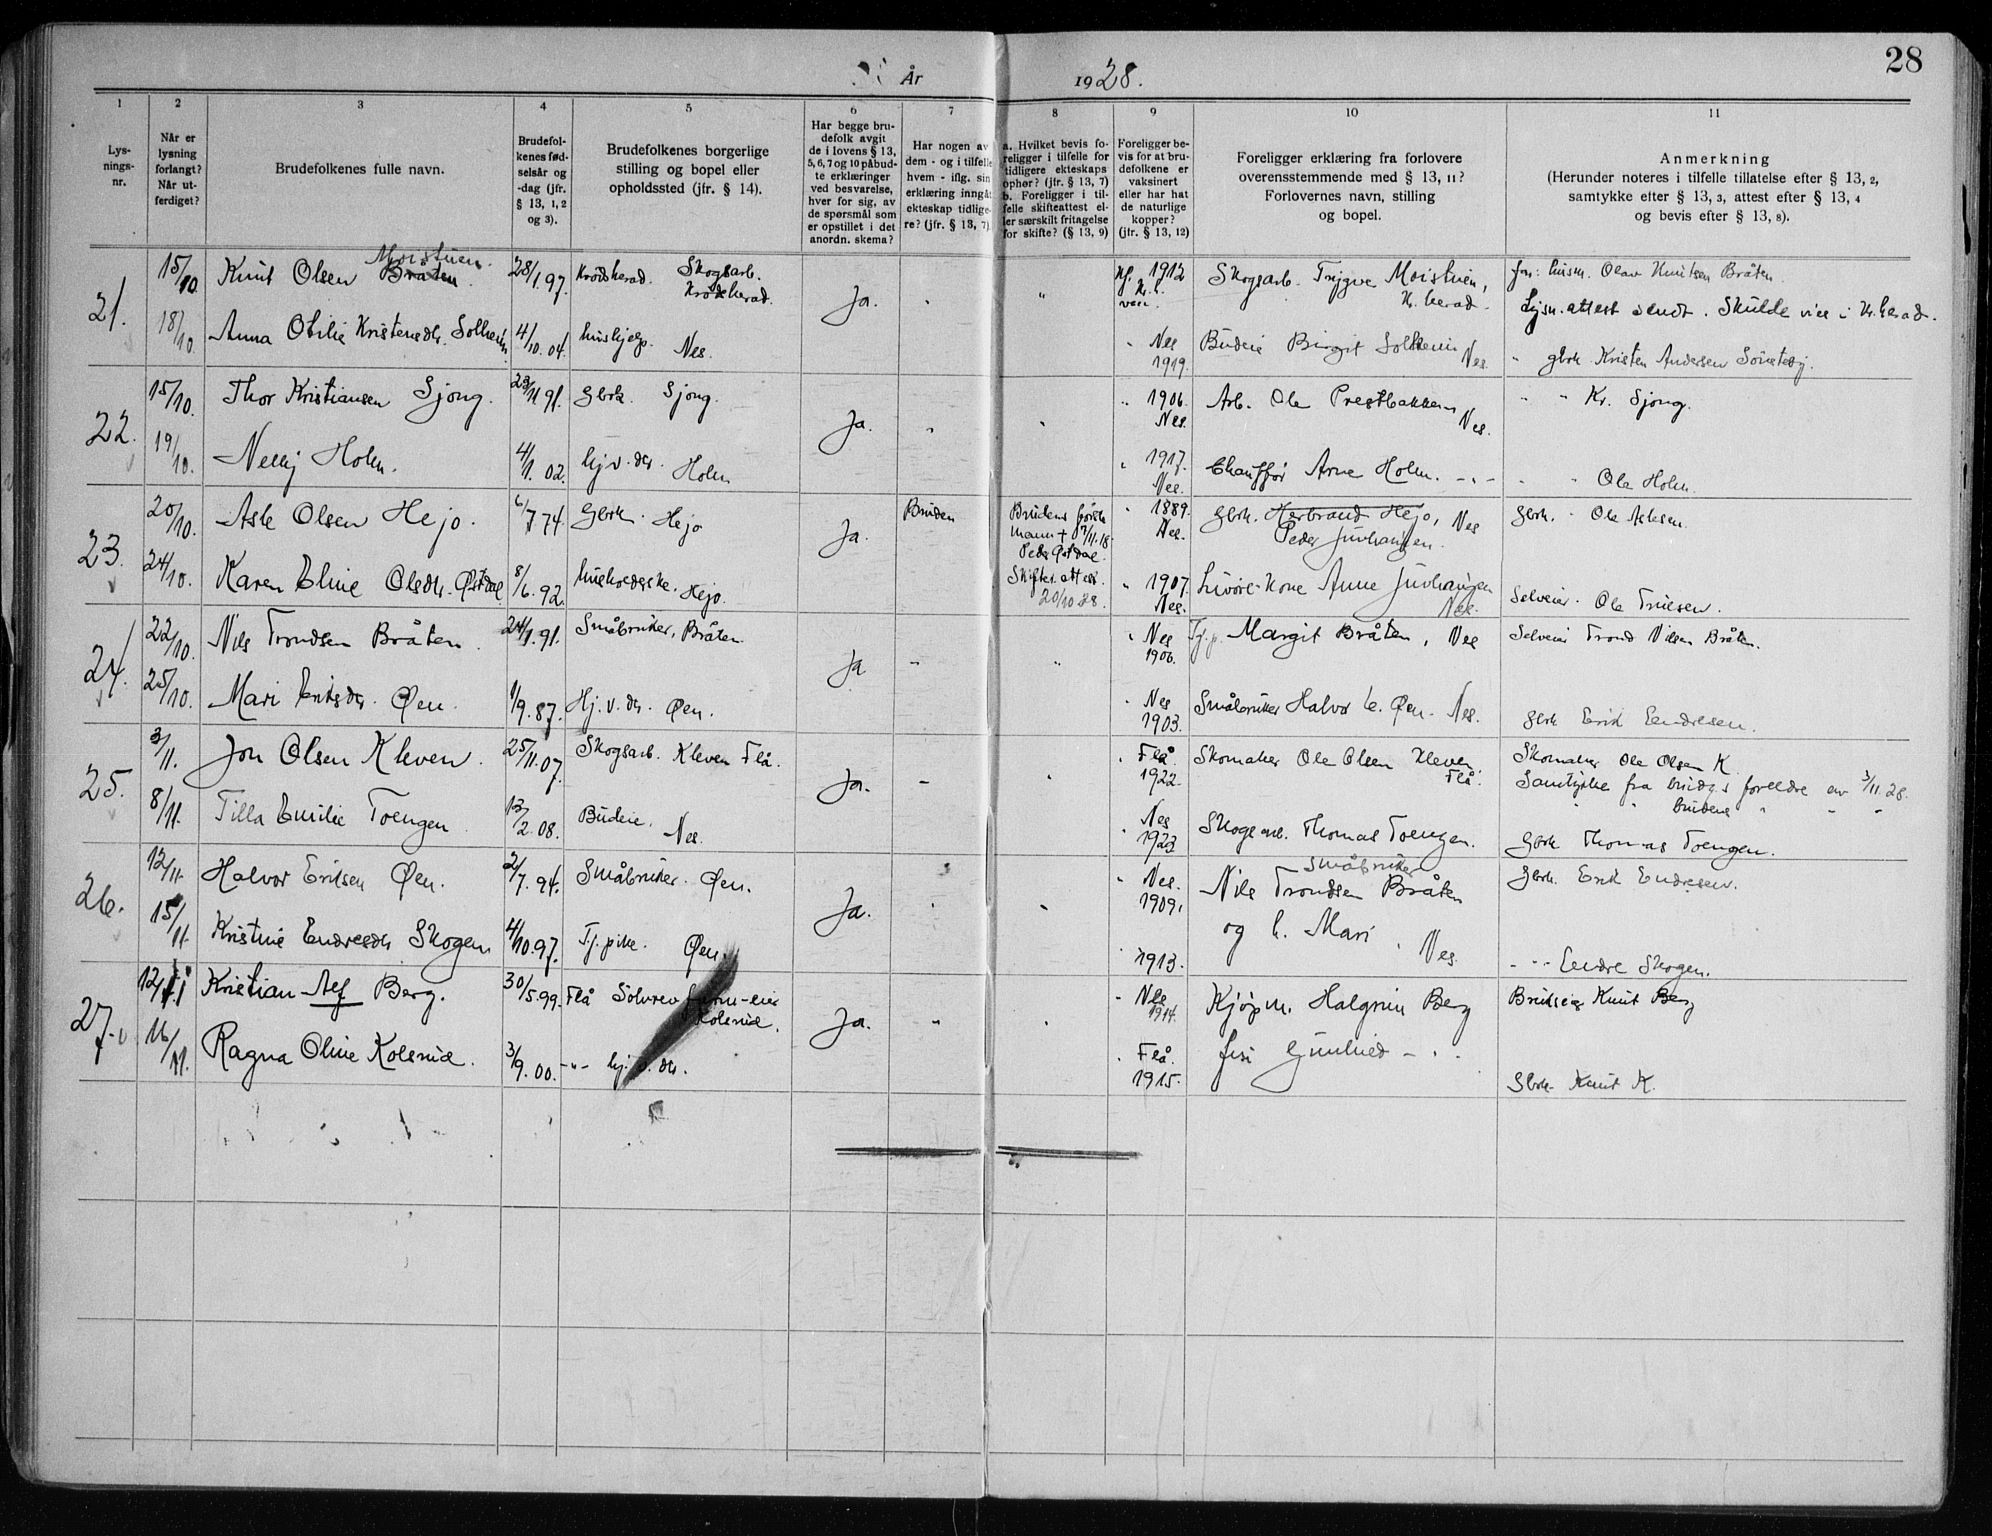 28
År 1928.
1 2 3 4 5 6 7 8 9 10 11
Lys-
nings-
nr.
Når er
lysning
forlangt?
Når ut-
ferdiget?
Brudefolkenes fulle navn.
Brudefol-
kenes fød-
selsår og
-dag (jfr.
§ 13, 1, 2
og 3).
Brudefolkenes borgerlige
stilling og bopel eller
opholdssted (jfr. § 14).
Har begge bru-
defolk avgit
de i lovens § 13,
5, 6, 7 og 10 påbud-
te erklæringer
ved besvarelse,
hver for sig, av
de spørsmål som
er opstillet i det
anordn. skema?
Har nogen av
dem - og i tilfelle
hvem - iflg. sin
erklæring inngåt
ekteskap tidlige-
re? (jfr. § 13, 7).
a. Hvilket bevis fo-
religger i tilfelle for
tidligere ekteskaps
ophør? (jfr. § 13, 7)
b. Foreligger i til-
felle skifteattest el-
ler særskilt fritagelse
for skifte? (§ 13, 9)
Foreligger be-
vis for at bru-
defolkene er
vaksinert
eller har hat
de naturlige
kopper?
(jfr. § 13, 12)
Foreligger erklæring fra forlovere
overensstemmende med § 13, 11?
Forlovernes navn, stilling
og bopel.
Anmerkning
(Herunder noteres i tilfelle tillatelse efter § 13, 2,
samtykke efter § 13, 3, attest efter § 13, 4
og bevis efter § 13, 8).
21. 15/10. Knut Olsen Bråten Moistuen. 28/1.97. Krødsherad. Skogsarb. Krødsherad. Ja. " " 1912 Skogsarb. Trygve Moistuen, Kr. herad. Olav Knutsen Bråten
Lysn. attest sendt. Skulde vies i Kr. herad.
18/10. Anna Otilie Kristensdtr. Solheim 4/10.04. hushjelp. Nes. " Nes 1919. Budeie Birgit Solheim Nes. " gbrk Kristen Andersen
22. 15/10. Thor Kristiansen Sjong. 23/11 91. Gbrk. Sjong. Ja. " " " 1906. Nes. Arb. Ole Prestbakken Nes. " " Kr. Sjong.
19/10. Nelly Holm. 4/1.02. hj.v. dtr. Holm " 1917. Nes. Chauffør Arne Holm. -"- " " Ole Holm.
23. 20/10. Asle Olsen Hejo. 6/7.74. Gbrk. Hejo Ja. Bruden Brudens første mann + 17/11.18 Peder Østdal. " 1889. Nes. Gbrk. Herbrand Hejo, Nes Peder Juvhaugen. Gbrk. Ole Aslesen.
24/10. Karen Eline Olsdtr. Østdal 8/6.92. husholderske. Hejo. Skifteattest. 20/10 28. " 1907. Nes. Anne Juvhaugen Nes. Selveier. Ole Trulsen.
24. 22/10. Nils Trondsen Bråten. 24/1.91. Småbruker, Bråten Ja " " " Nes 1906. Tj. p. Margit Bråten, Nes Selveier Trond Nilsen Bråten.
25/10. Mari Eriksdtr. Øen. 1/9.87. Hj. v. dtr. Øen. " Nes 1903. Småbruker Halvor E. Øen. Nes. Gbrk Erik Endresen.
25. 3/11. Jon Olsen Kleven. 25/11.07. Skogsarb. Kleven Flå. Ja. " " " Flå 1922. Skomaker Ole Olsen Kleven. Flå. Skomaker Ole Olsen K.
Samtykke fra brudgs foreldre av 3/11.28.
" " brudens " " "
8/11. Tilla Emilie Toengen. 13/2.08. Budeie. Nes. " Nes 1923 Skogsarb. Thomas Toengen. Gbrk Thomas Toengen.
26. 12/11. Halvor Eriksen Øen. 2/7.94. Småbruker. Øen. Ja. " " " Nes. 1909. Småbruker Nils Trondsen Bråten Gbrk. Erik Endresen.
15/11. Kristine Endresdtr Skogen 4/10.97. Tj. pike. Øen. " 1913. og h. Mari. Nes. " " Endre Skogen.
27. 12/11 Kristian Alf Berg. 30/5.99. Flå Sølvrevfarm-eier Kolsrud. Ja. " " " Nes 1914. Kjøpm. Halgrim Berg Brukseier Knut Berg
16/11. Ragna Oline Kolsrud. 3/9.00. -"- hj. v. dtr. " Flå. 1915. Gunhild -"- Gbrk. Knut K.